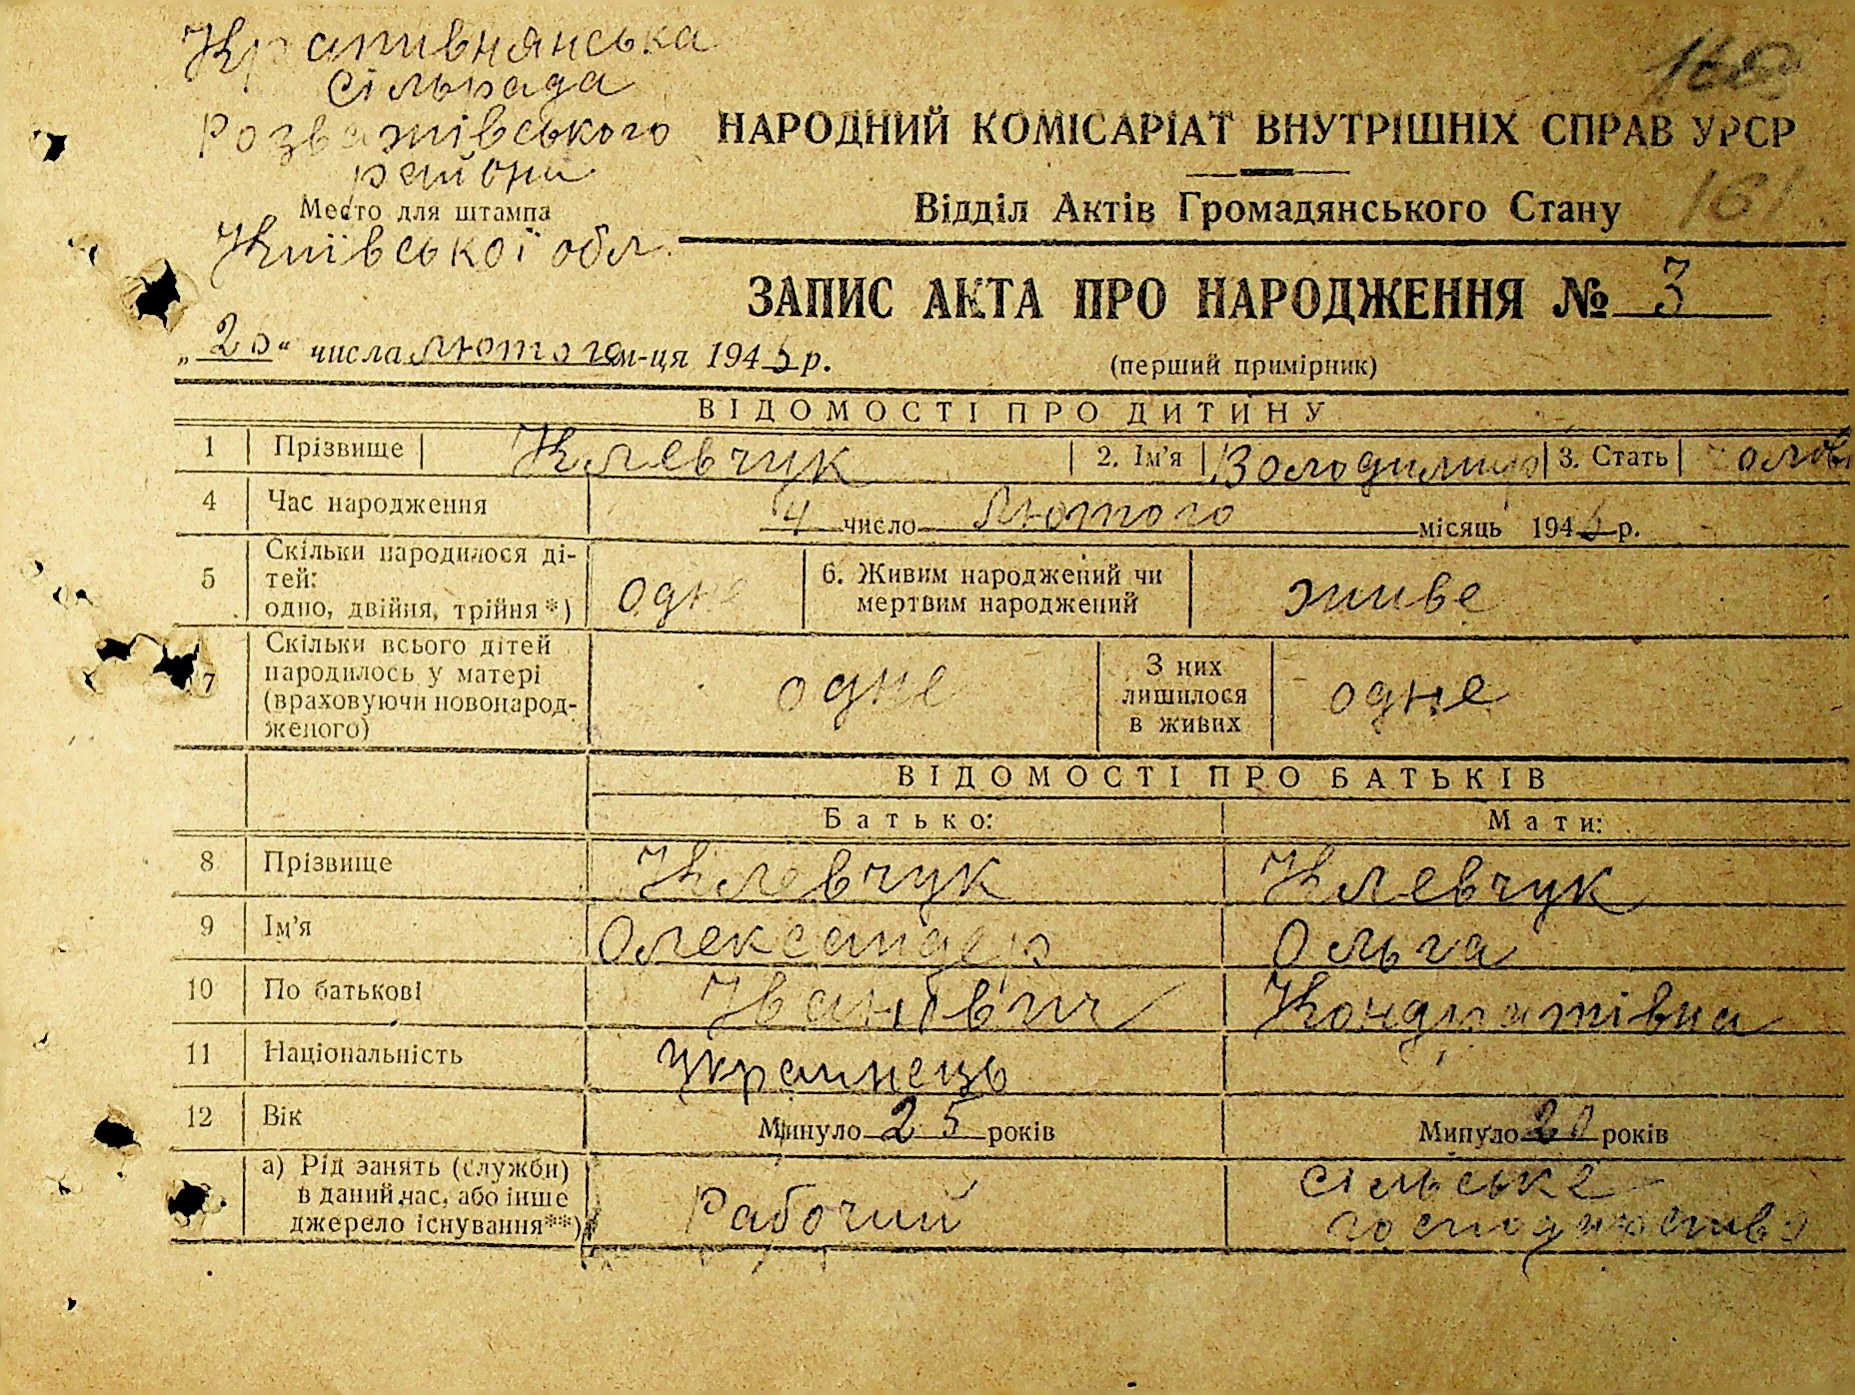 Кропивнянська
сільрада
Розважівського
району
Место для штампа
Київської обл.
161
НАРОДНИЙ КОМІСАРІАТ ВНУТРІШНІХ СПРАВ УРСР
Відділ Актів Громадянського Стану
ЗАПИС АКТА ПРО НАРОДЖЕННЯ № 3
„20“ числа лютого м-ця 194 р.
(перший примірник)
ВІДОМОСТІ ПРО ДИТИНУ
1 Прізвище Клевчук 2. Ім'я Володимир 3. Стать чолов
4 Час народження 4 число Лютого місяць 194 р.
5 Скільки народилося ді-
тей:
одно, двійня, трійня*) одне
6. Живим народжений чи
мертвим народжений живе
7 Скільки всього дітей
народилось у матері
(враховуючи новонарод-
женого) одне
З них
лишилося
в живих одне
ВІДОМОСТІ ПРО БАТЬКІВ
Батько: Мати:
8 Прізвище Клевчук Клевчук
9 Ім'я Олександер Ольга
10 По батькові Іванович Кондратівна
11 Національність Украинець
12 Вік Минуло 25 років Минуло 20 років
а) Рід занять (служби)
в даний час, або інше
джерело існування**) Рабочий
сільське
господарство